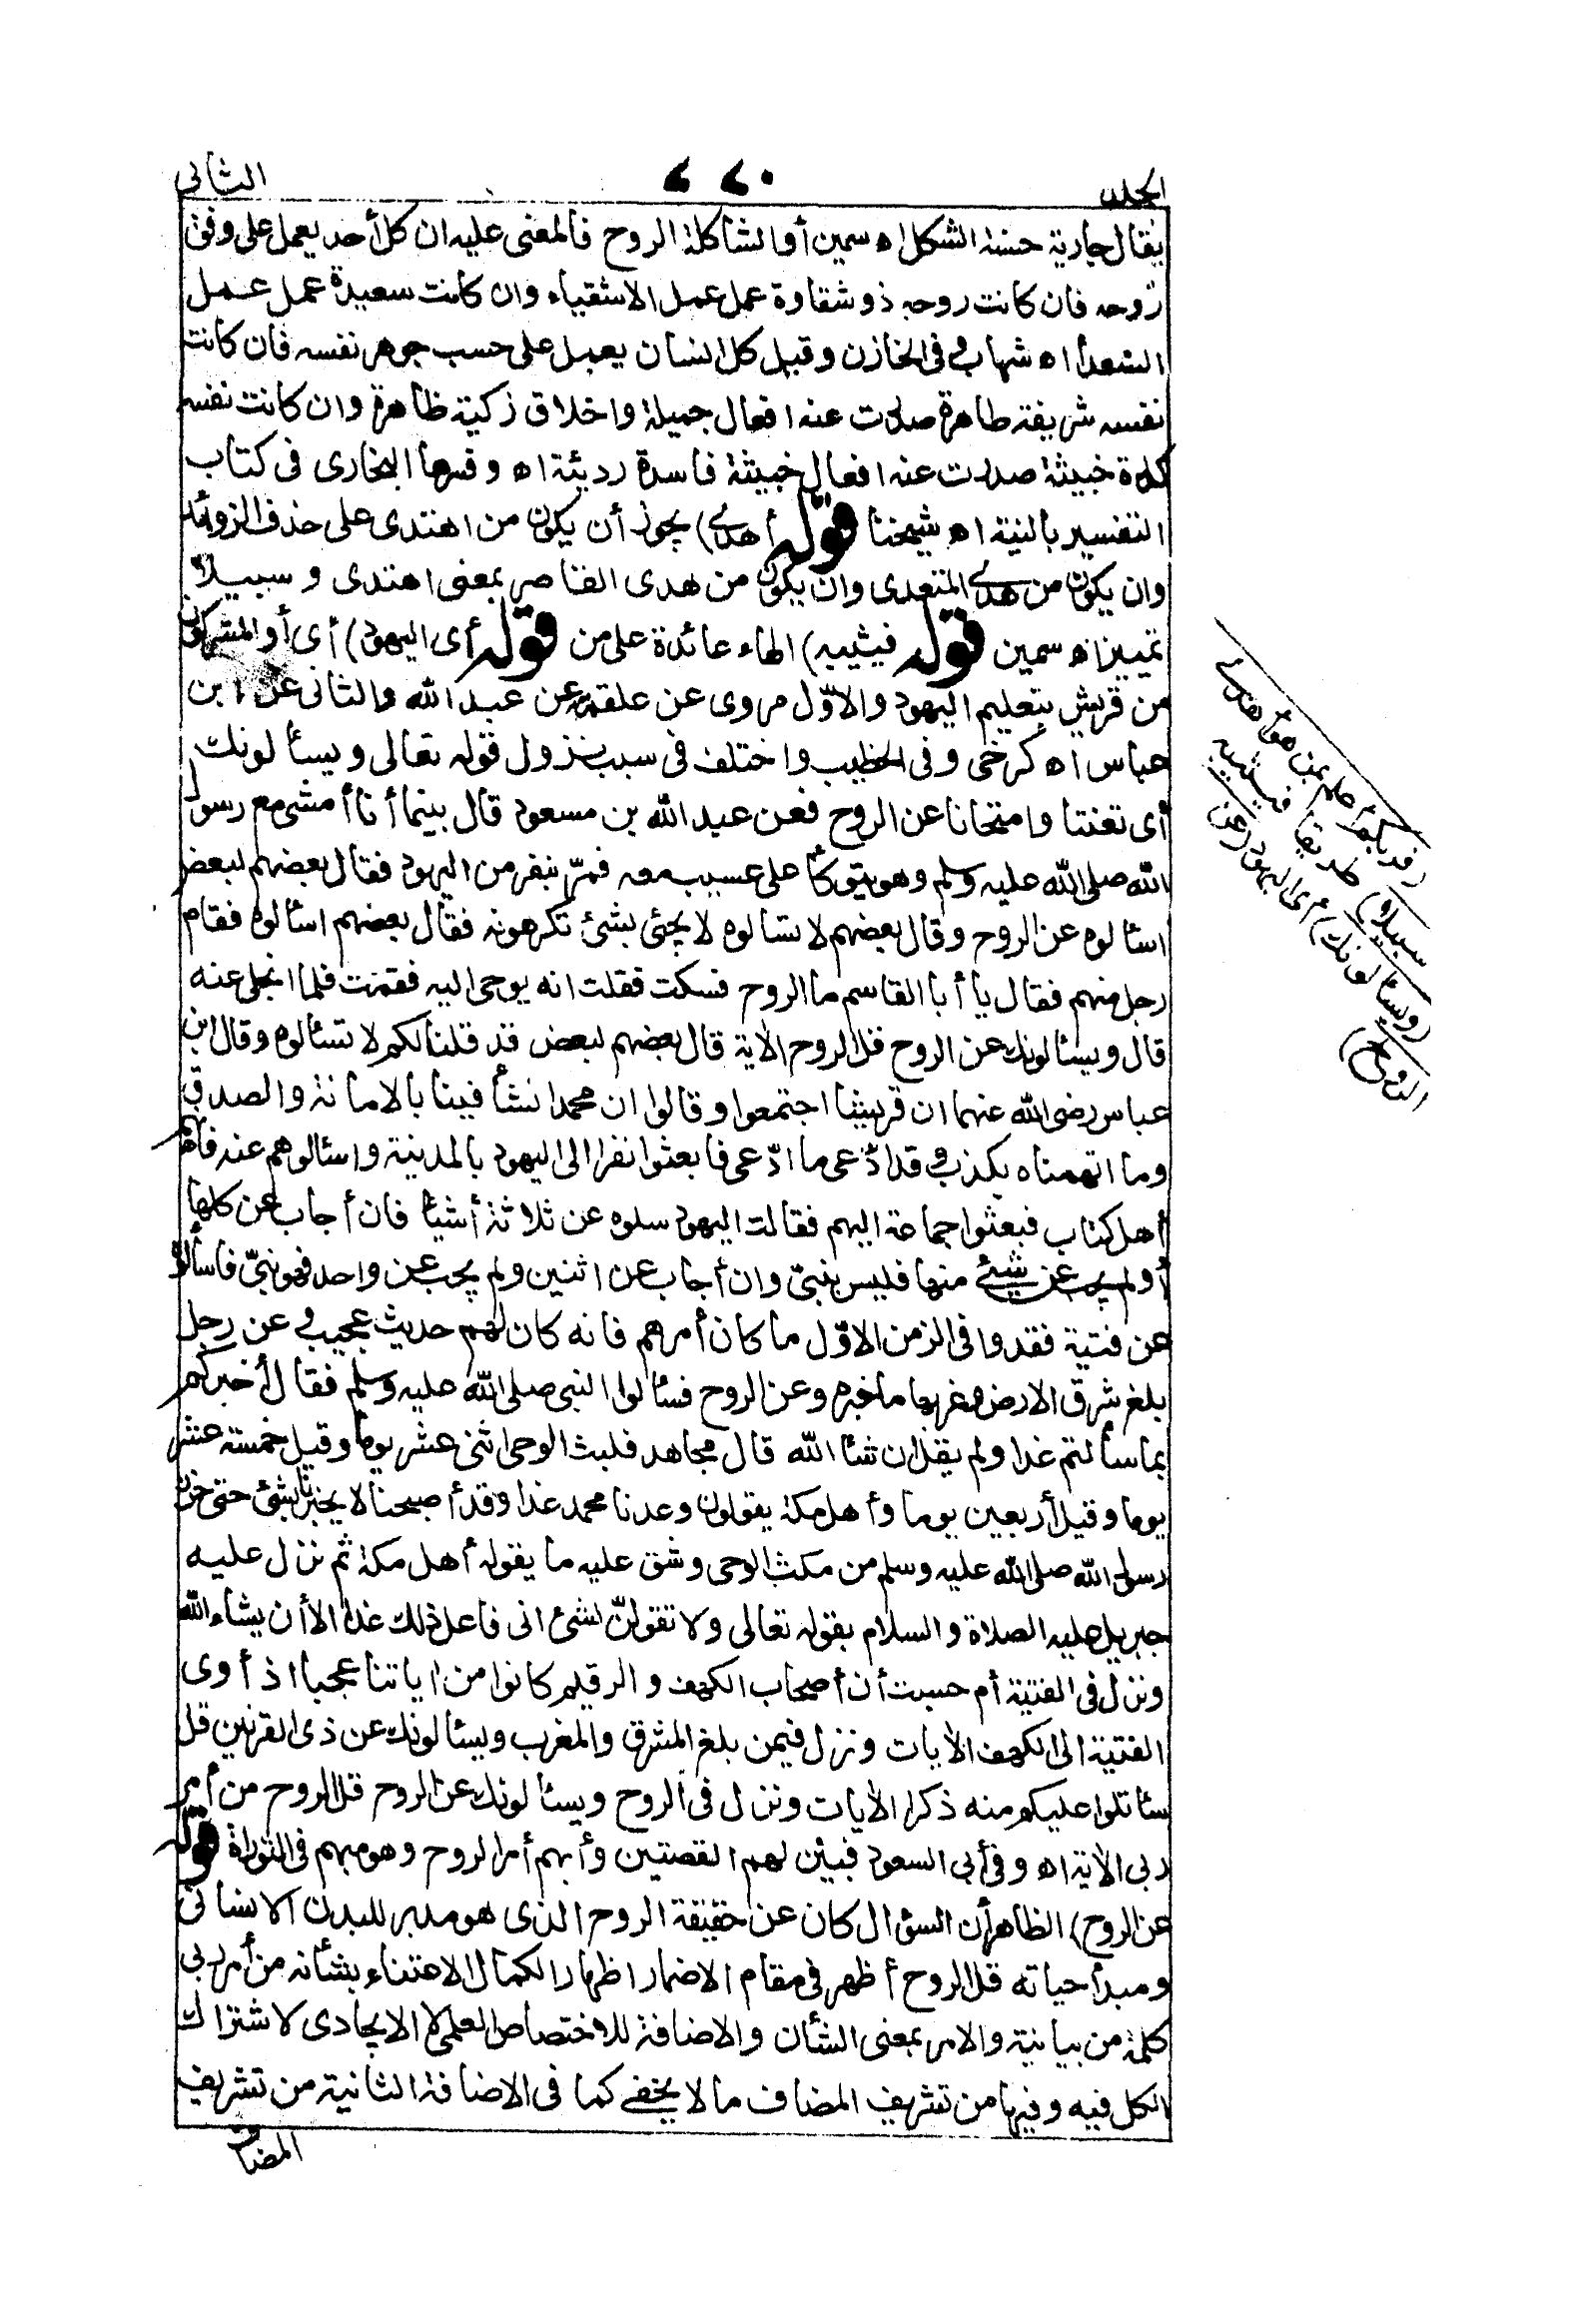 الجلد ٧٧٠ الثانى
يقال جارية حسنة الشكل اه سمين أو الشاكلة الروح فالمعنى عليه ان كل أحد يعمل على وفق
روحه فان كانت روحه ذو شقاوة عمل عمل الاشقياء وان كانت سعيدة عمل عمل
السعدا اه شهاب وفى الخازن وقيل كل انسان يعمل على حسب جوهر نفسه فان كانت
نفسه شريفة طاهرة صدرت عنه افعال جميلة واخلاق زكية ظاهرة وان كانت نفسه
كدرة خبيثة صدرت عنه افعال خبيثة فاسدة رديئة اه وفسرها البخارى فى كتاب
التفسير بالنية اه شيخنا قوله أهدى) يجوز أن يكون من اهتدى على حذف الزوائد
وان يكون من هدى المتعدى وان يكون من هدى القاصر بمعنى اهتدى و سبيلا
تمييز اه سمين قوله فيثيبه) الهاء عائدة على من قوله أى اليهود) أى أو المشركون
من قريش بتعليم اليهود والاوّل مروى عن علقمة عن عبد الله والثانى عن ابن
عباس اه كرخى وفى الخطيب واختلف فى سبب نزول قوله تعالى ويسئالونك
أى تعنتا وامتحانا عن الروح فعن عبد الله بن مسعود قال بينما أنا أمشى مع رسول
الله صلى الله عليه وسلم وهو يتوكأ على عسيب معه فمرّ بنفر من اليهود فقال بعضهم لبعض
اسئالوه عن الروح وقال بعضهم لا تسالوه لا يجئى بشئ تكرهونه فقال بعضهم اسئالوه فقام
رجل منهم فقال يا أبا القاسم ما الروح فسكت فقلت انه يوحى اليه فقمت فلما انجلى عنه
قال ويسئالونك عن الروح قل الروح الأية قال بعضهم لبعض قد قلنا لكم لا تسئالوه وقال ابن
عباس رضى الله عنهما ان قريشا اجتمعوا وقالوا ان محمدا نشأ فينا بالامانة والصدق
وما اتهمناه بكذب وقد ادّعى ما ادّعى فابعثوا نفرا الى اليهود بالمدينة واسئالوهم عنه فانهم
أهل كتاب فبعثوا جماعة اليهم فقالت اليهود سلوه عن ثلاثة أشيا فان أجاب عن كلها
أو لم يجب عن شئ منها فليس بنبىّ وان أجاب عن اثنين ولم يجب عن واحد فهو نبىّ فاسألوه
عن فتية فقدوا فى الزمن الاوّل ما كان أمرهم فانه كان لهم حديث عجيب و عن رجل
بلغ شرق الارض وغربها ما خبره وعن الروح فسئالوا النبى صلى الله عليه وسلم فقال أخبركم
بما سألتم غدا ولم يقل ان شئا الله قال مجاهد فلبث الوحى اثنى عشر يوما وقيل خمسة عشر
يوما وقيل أربعين يوما وأهل مكة يقولون وعدنا محمد غدا وقد أصبحنا لا يخبرنا بشئ حتى حزن
رسول الله صلى الله عليه وسلم من مكث الوحى وشق عليه ما يقوله أهل مكة ثم نزل عليه
جبريل عليه الصلاة والسلام بقوله تعالى ولا تقولنّ لشئ انى فاعل ذلك غدا الا أن يشاء الله
ونزل فى الفتية أم حسبت أن أصحاب الكهف والرقيم كانوا من اياتنا عجبا اذ أوى
الفتية الى الكهف الأيات ونزل فيمن بلغ المشرق والمغرب ويسئالونك عن ذى القرنين قل
سئاتلوا عليكم منه ذكرا الأيات ونزل فى الروح ويسئالونك عن الروح قل الروح من أمر
ربى الأية اه وفى أبى السعود فبيّن لهم القصتين وأبهم أمر الروح وهو مبهم فى التوراة قوله
عن الروح) الظاهر أن السؤال كان عن حقيقة الروح الذى هو مدبر للبدن الانسانى
ومبدأ حياته قل الروح أظهر فى مقام الاضمار اظهارا لكمال الاعتناء بشأنه من أمر ربى
كلمة من بيانية والامر بمعنى الشأن والاضافة للاختصاص العلمى لا الايجادى لاشتراك
الكل فيه وفيها من تشريف المضاف ما لا يخفى كما فى الاضافة الثانية من تشريف
المضاف
(فربكم أعلم بمن هو أهدى
سبيلا) طريقا فيثيبه
(ويسئالونك) أى اليهود (عن
الروح)